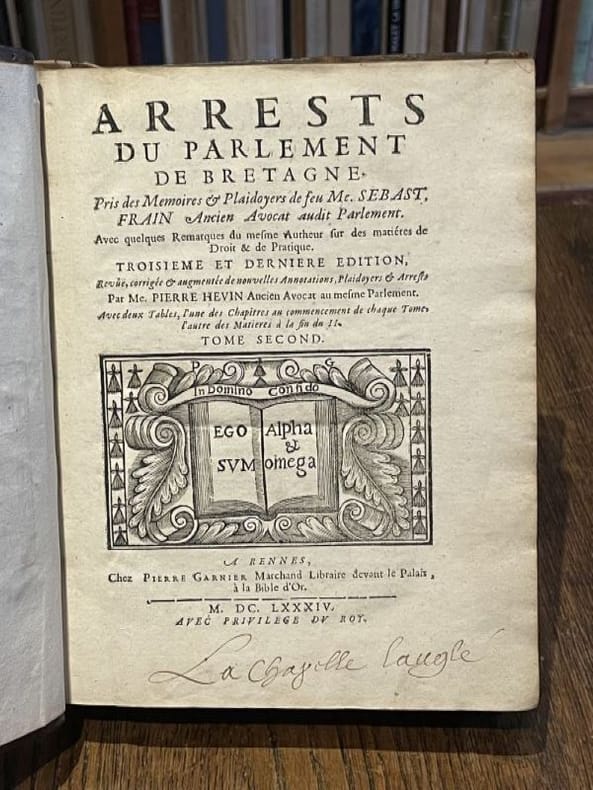 ARRESTS
DU PARLEMENT
DE BRETAGNE.
Pris des Memoires & Plaidoyers de feu Me. SEBAST,
FRAIN Ancien Avocat audit Parlement.
Avec quelques Remarques du mesme Autheur sur des matiéres de
Droit & de Pratique.
TROISIEME ET DERNIERE EDITION,
Revûë, corrigée & augmentée de nouvelles Annotations, Plaidoyers & Arrests
Par Me. PIERRE HEVIN Ancien Avocat au mesme Parlement.
Avec deux Tables, l'une des Chapitres au commencement de chaque Tome,
l'autre des Matieres à la fin du II.
TOME SECOND.
P G
In Domino Confido
EGO Alpha
&
SVM omega
A RENNES,
Chez PIERRE GARNIER Marchand Libraire devant le Palais,
à la Bible d'Or.
M. DC. LXXXIV.
AVEC PRIVILEGE DV ROY.
La chapelle laugle